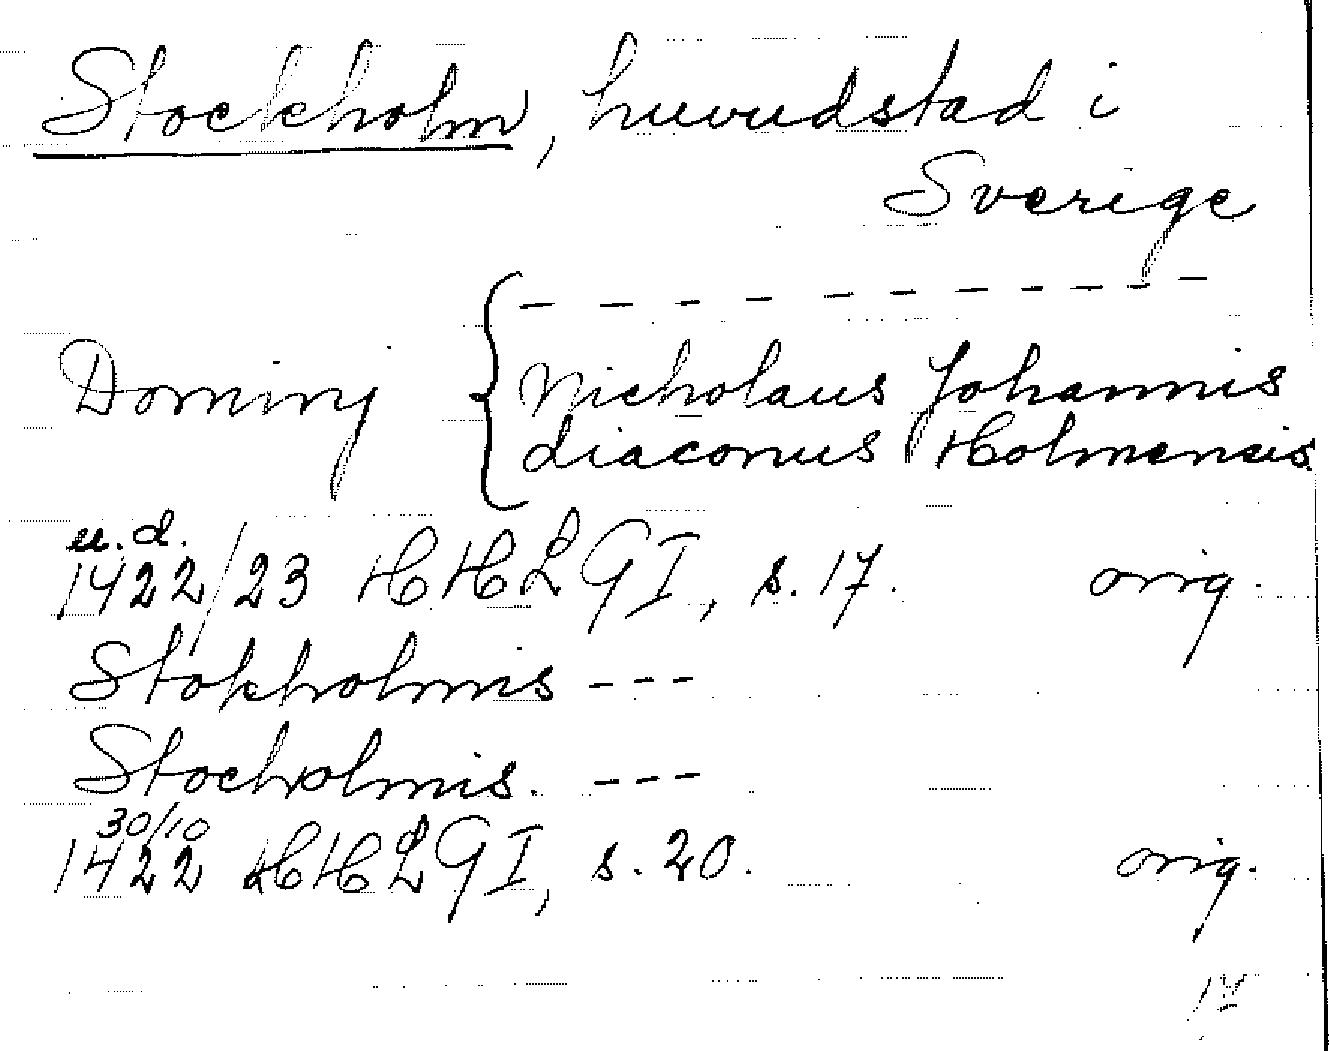 Stockholm, huvudstad i
Sverige
- - - - - - - - - -
Dominj { Nicholaus Johannis
diaconus Holmensis
u.d.
1422/23 HHLGI, s. 17. orig.
Stokholmis ---
Stocholmis. ---
30/10
1422 HHLGI, s. 20. orig.